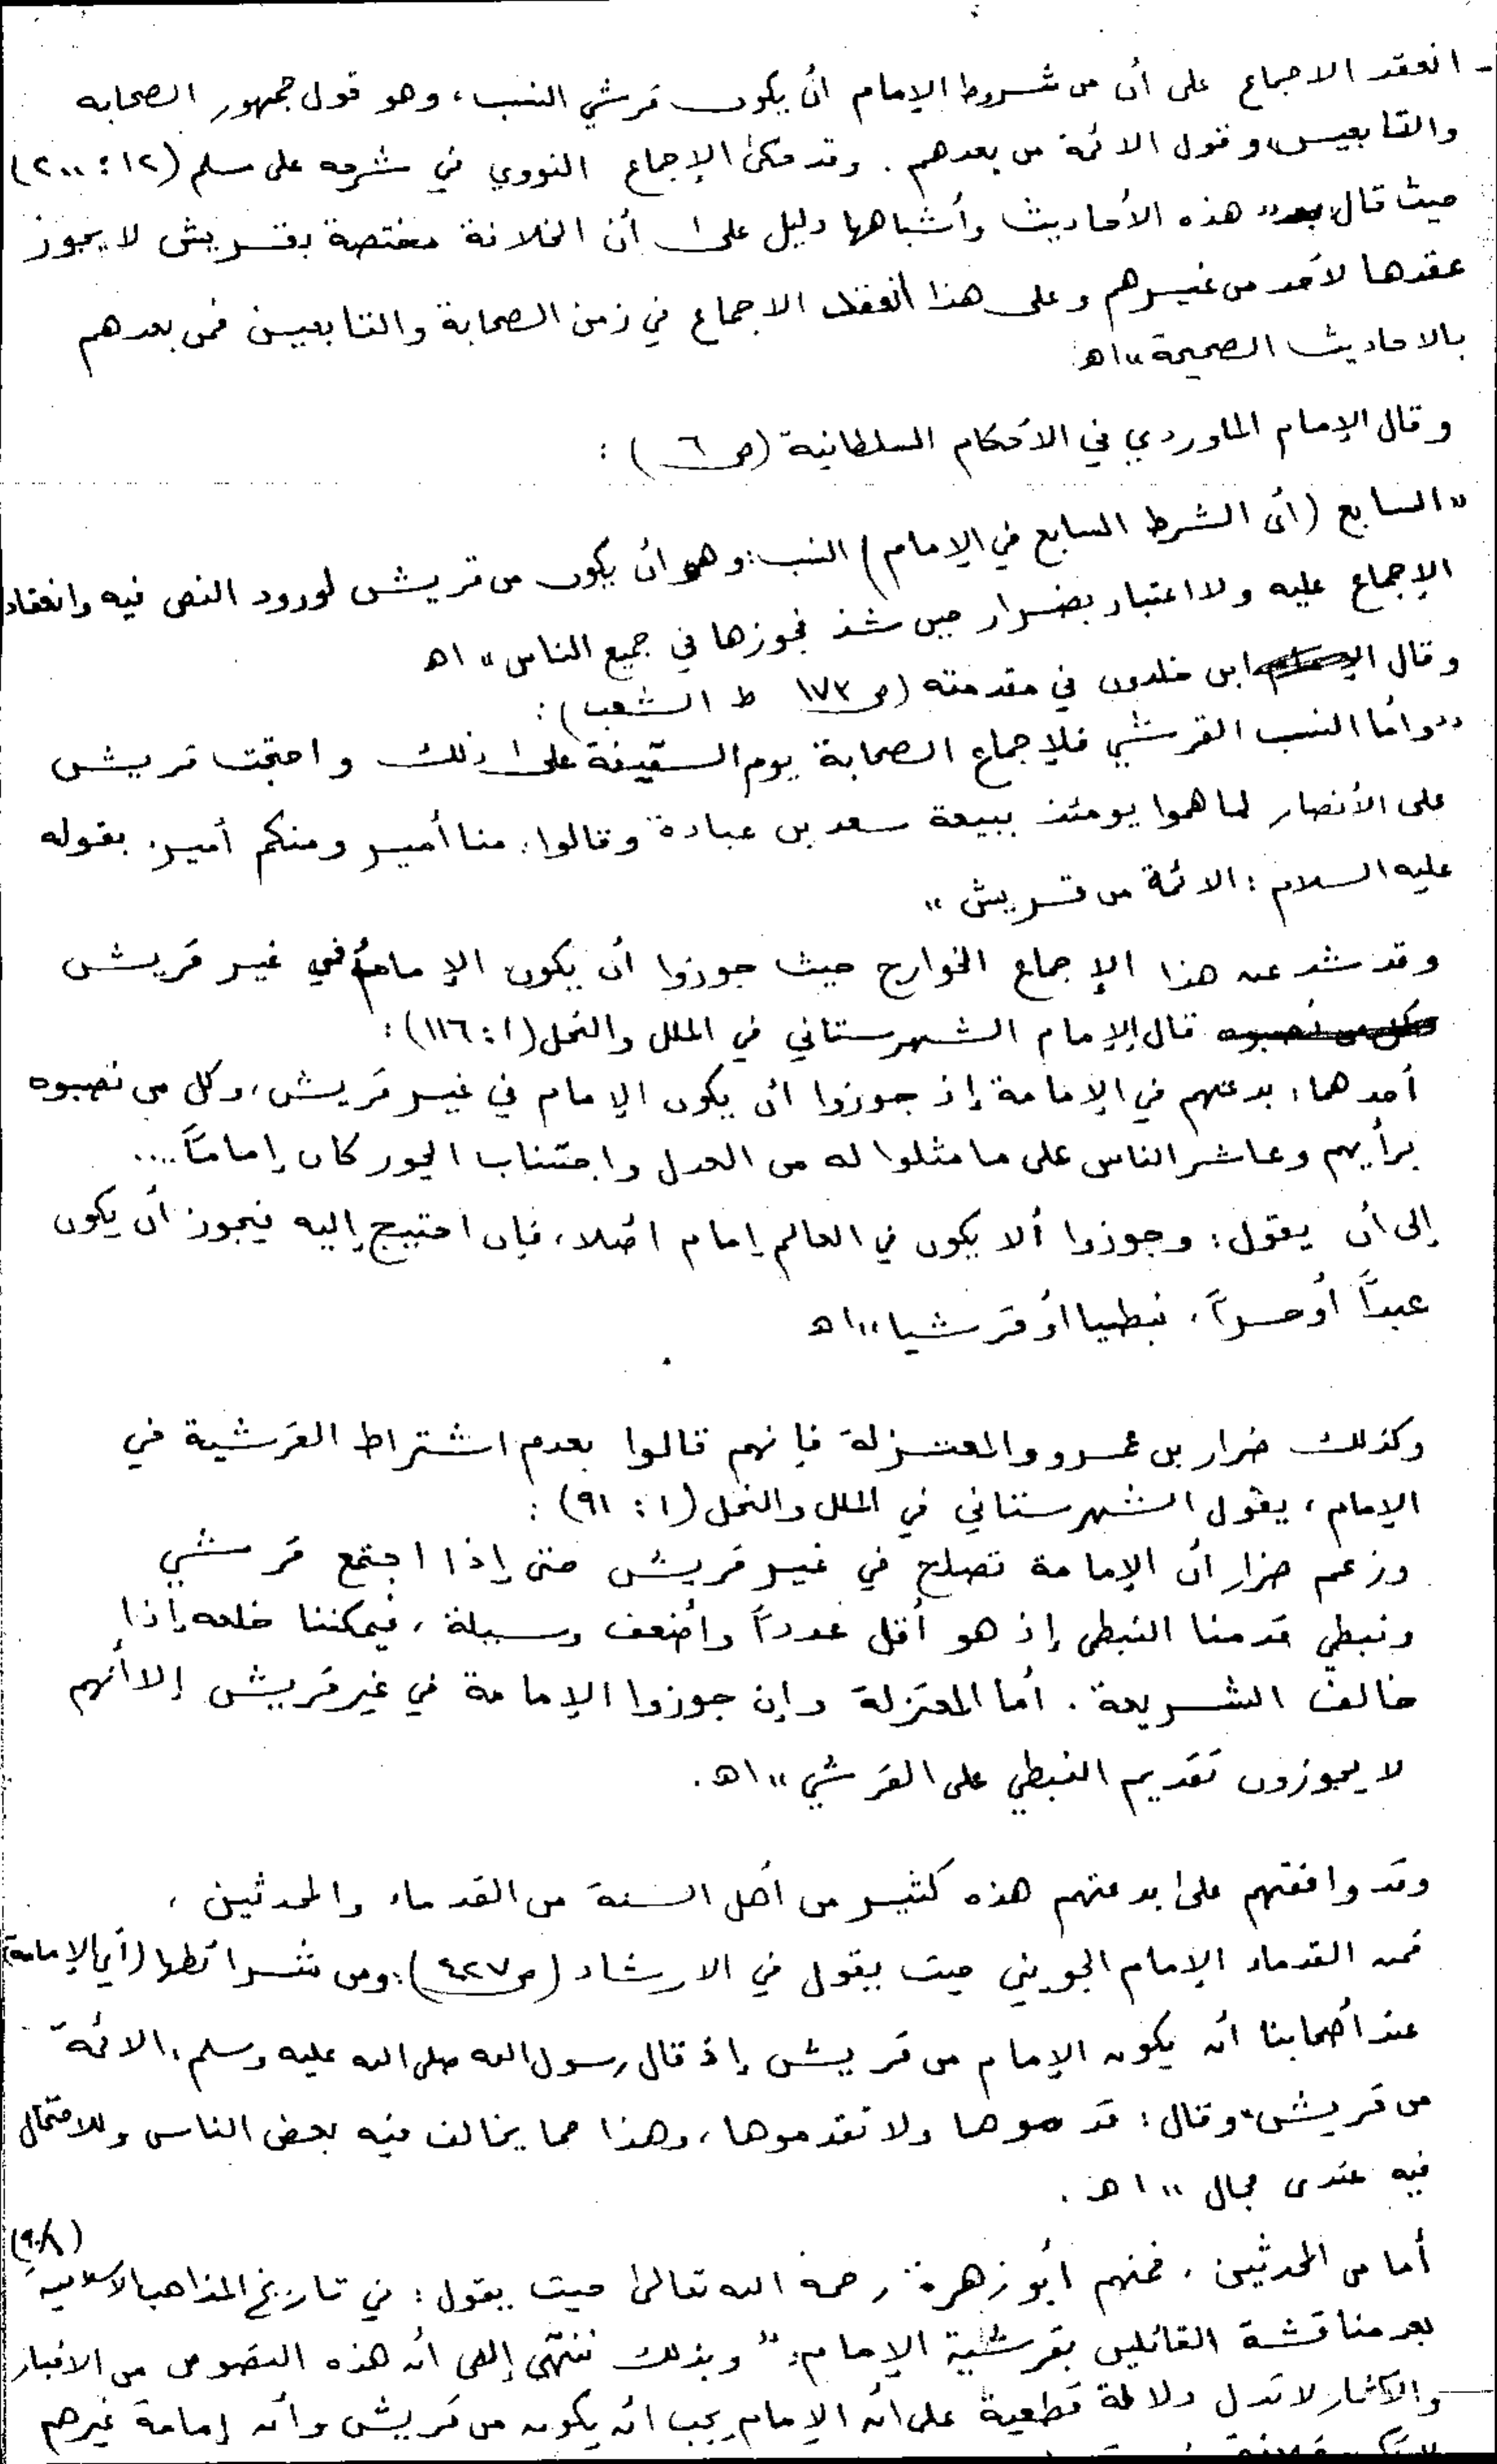 - انعقد الاجماع على أن من شروط الإمام أن يكون قرشي النسب، وهو قول جمهور الصحابه
والتابعين وقول الائمة من بعدهم. وقد حكى الإجماع النووي في شرحه على مسلم (١٢ : ٢٠٠)
حيث قال "هذه الأحاديث وأشباهها دليل على أن الخلافة مختصة بقريش لا يجوز
عقدها لأحد من غيرهم وعلى هذا انعقد الاجماع في زمن الصحابة والتابعين فمن بعدهم
بالاحاديث الصحيحة" اهـ
وقال الإمام الماوردي في الأحكام السلطانية (ص ٦) :
"السابع (أى الشرط السابع في الإمام) النسب: وهو أن يكون من قريش لورود النص فيه وانعقاد
الإجماع عليه ولا اعتبار بضرار حين شذ فجوزها في جميع الناس" اهـ
وقال ابن خلدون في مقدمته (ص ١٧٣ ط الشعب) :
"وأما النسب القرشي فلإجماع الصحابة يوم السقيفة على ذلك واحتجت قريش
على الأنصار لما هموا يومئذ ببيعة سعد بن عبادة وقالوا: منا أمير ومنكم أمير. بقوله
عليه السلام : الائمة من قريش"
وقد شذ عن هذا الإجماع الخوارج حيث جوزوا أن يكون الإمام في غير قريش
قال الإمام الشهرستاني في الملل والنحل (١ : ١١٦) :
أحدهما: بدعتهم في الإمامة إذ جوزوا أن يكون الإمام في غير قريش، وكل من نصبوه
برأيهم وعاشر الناس على ما مثلوا له من العدل واجتناب الجور كان إماماً....
إلى أن يقول : وجوزوا ألا يكون في العالم إمام أصلا، فإن احتيج إليه فيجوز أن يكون
عبداً أو حراً، نبطيا أو قرشيا" اهـ
وكذلك ضرار بن عمرو والمعتزلة فإنهم قالوا بعدم اشتراط القرشية في
الإمام، يقول الشهرستاني في الملل والنحل (١ : ٩١) :
وزعم ضرار أن الإمامة تصلح في غير قريش حتى إذا اجتمع قرشي
ونبطي قدمنا النبطي إذ هو أقل عدداً وأضعف وسيلة، فيمكننا خلعه إذا
خالف الشريعة. أما المعتزلة وإن جوزوا الإمامة في غير قريش إلا أنهم
لا يجوزون تقديم النبطي على القرشي" اهـ.
وقد وافقهم على بدعتهم هذه كثير من أهل السنة من القدماء والمحدثين،
فمن القدماء الإمام الجويني حيث يقول في الارشاد (ص ٤٢٧): ومن شرائطها (أي الإمامة)
عند أصحابنا أن يكون الإمام من قريش إذ قال رسول الله صلى الله عليه وسلم: الائمة
من قريش" وقال : قدموها ولا تقدموها، وهذا مما يخالف فيه بعض الناس وللاحتمال
فيه عندى مجال" اهـ.
أما من المحدثين، فمنهم أبو زهرة رحمه الله تعالى حيث يقول : في تاريخ المذاهب الاسلامية (٩٠/١)
بعد مناقشة القائلين بقرشية الإمام: "وبذلك ننتهى إلى أن هذه النصوص من الاخبار
والآثار لا تدل دلالة قطعية على أن الإمام يجب أن يكون من قريش وأن إمامة غيرهم